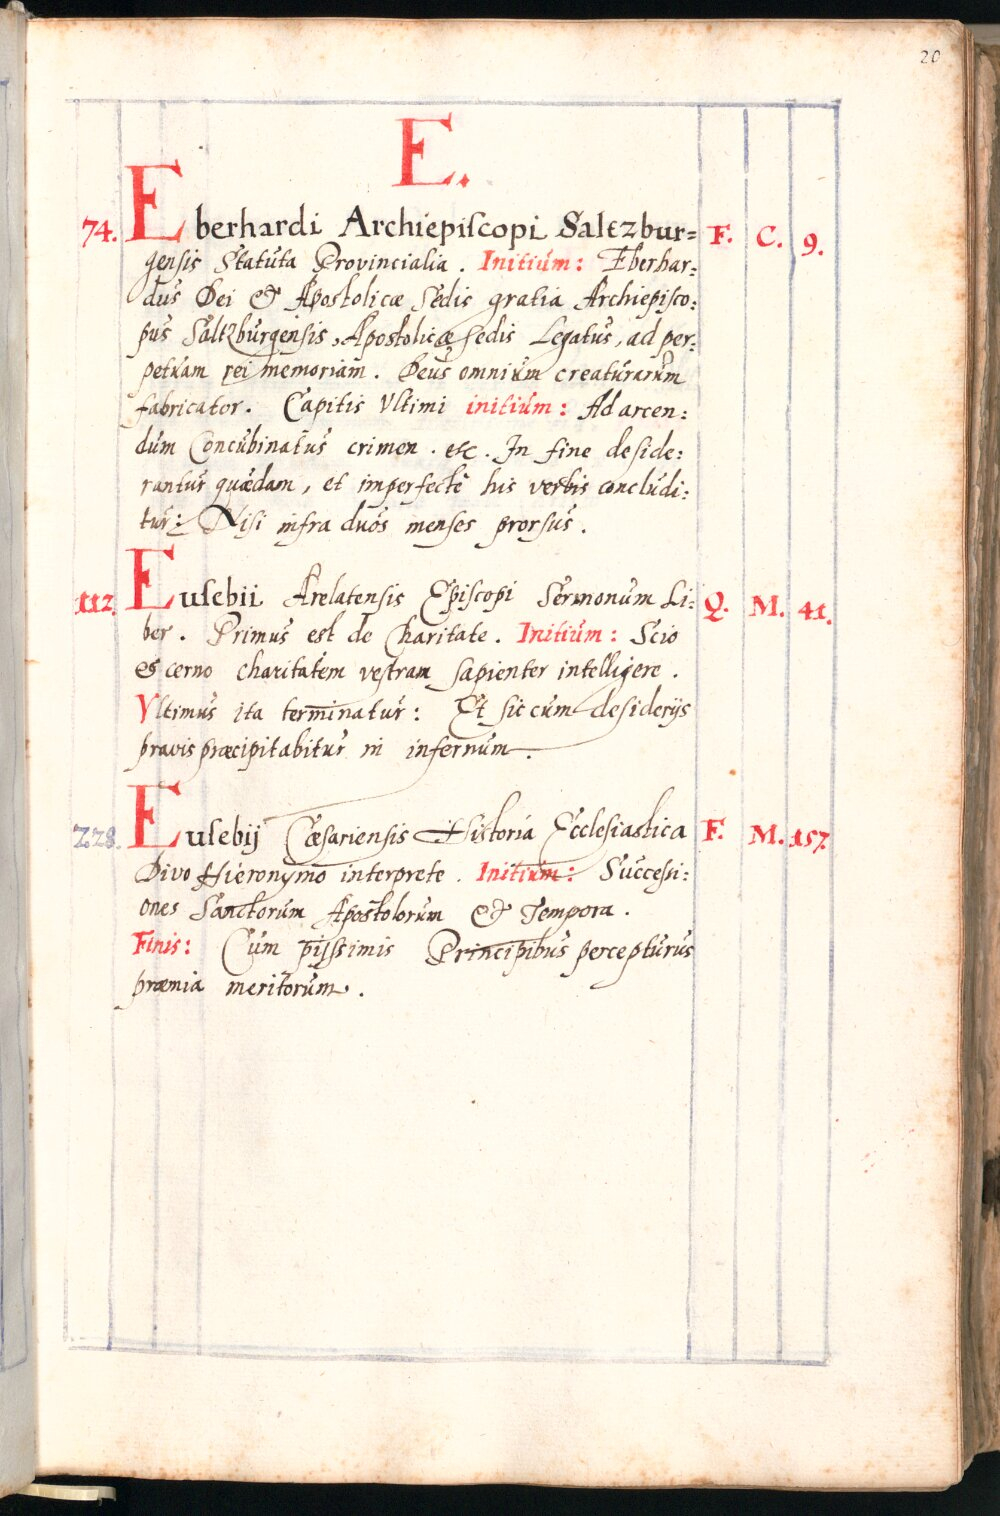 20
E.
74. Eberhardi Archiepiſcopi Saltzbur= F. C. 9.
genſis Statuta Provincialia. Initium: Eberhar=
dus Dei & Apostolicæ Sedis gratia Archiepiſco=
pus Saltzburgenſis, Apostolicæ ſedis Legatus, ad per=
petuam rei memoriam. Deus omnium creaturarum
fabricator. Capitis Ultimi initium: Ad arcen=
dum Concubinatus crimen. etc. In fine deſide=
rantur quædam, et imperfectè his verbis concludi=
tur: Niſi infra duos menſes prorſus.
112. Euſebii Arelatenſis Epiſcopi Sermonum Li= Q. M. 41.
ber. Primus est de Charitate. Initium: Scio
et cerno charitatem veſtram ſapienter intelligere.
Ultimus ita terminatur: Et ſic cum deſiderijs
pravis præcipitabitur in infernum.
228. Euſebij Cæſarienſis Historia Eccleſiastica F. M. 157.
Divo Hieronymo interprete. Initium: Succeſsi=
ones Sanctorum Apostolorum & Tempora.
Finis: Cum pijſsimis Principibus percepturus
præmia meritorum.